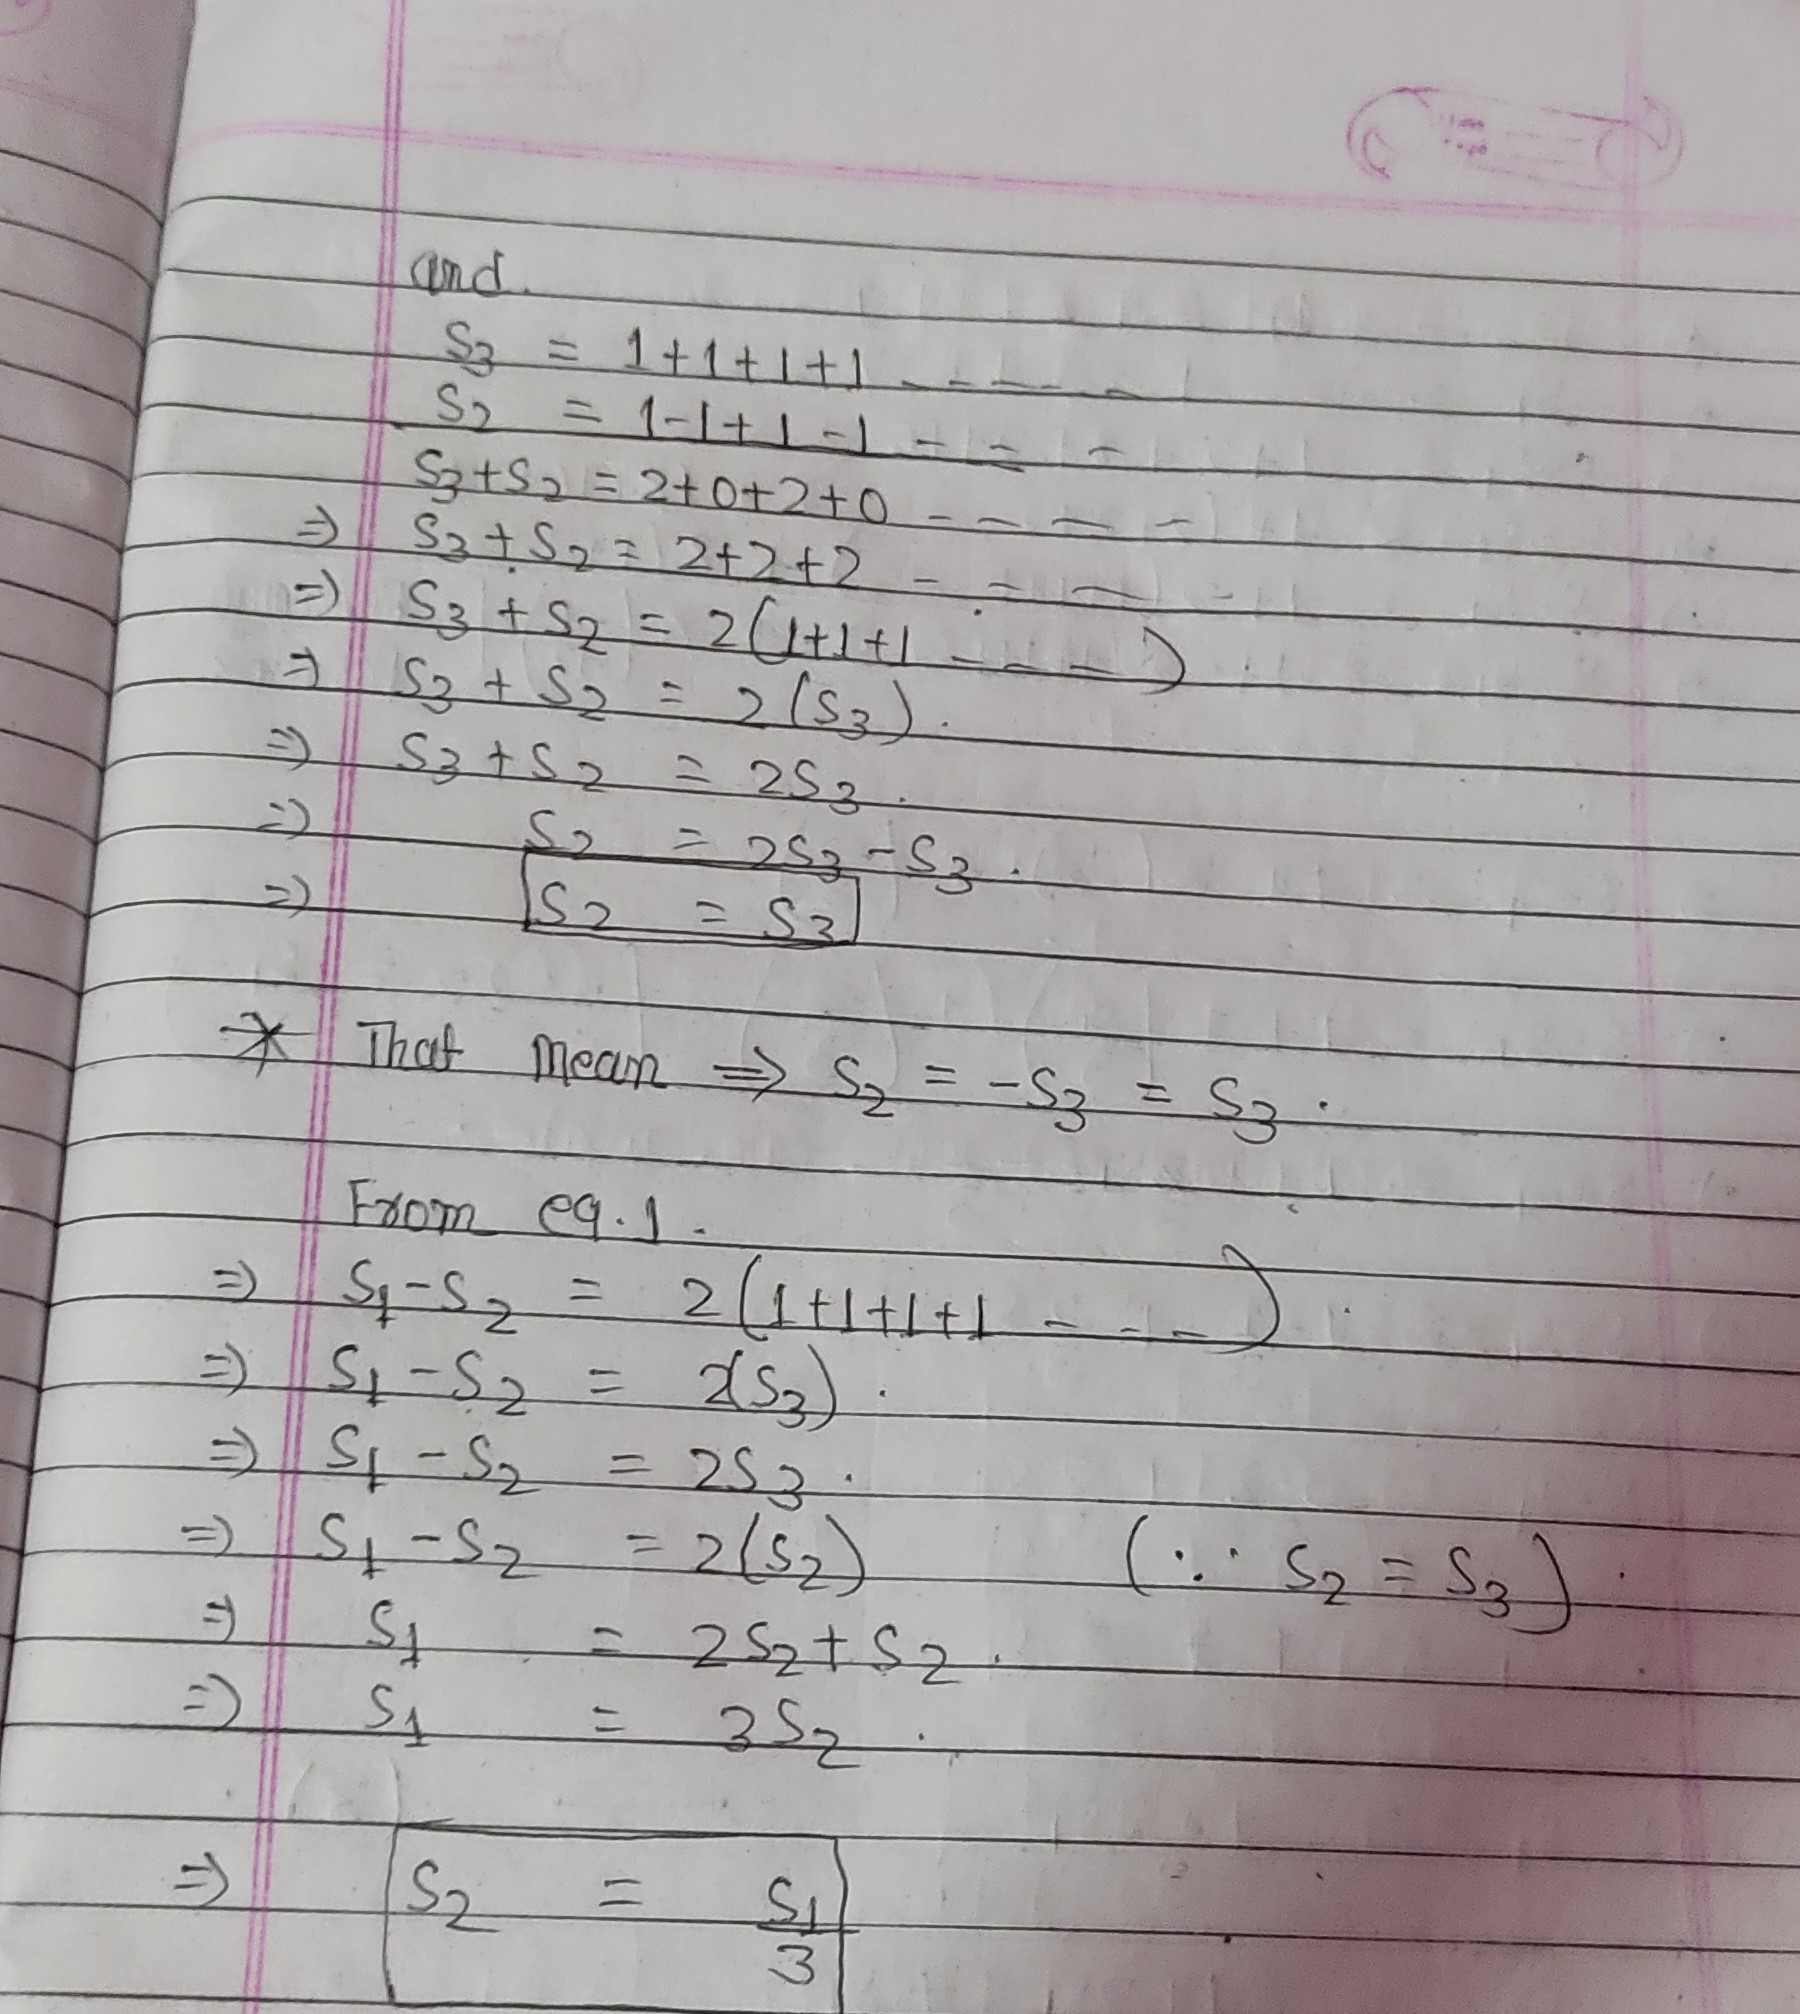 and
S₃ = 1+1+1+1 - - - - -
S₂ = 1-1+1-1 - - -
S₃+S₂ = 2+0+2+0 - - - -
⇒ S₃+S₂ = 2+2+2 - - - -
⇒ S₃+S₂ = 2(1+1+1 - - -)
⇒ S₃+S₂ = 2(S₃).
⇒ S₃+S₂ = 2S₃.
⇒ S₂ = 2S₃-S₃.
⇒ S₂ = S₃
* That mean ⇒ S₂ = -S₃ = S₃.
From eq.1.
⇒ S₁-S₂ = 2(1+1+1+1 - - -).
⇒ S₁-S₂ = 2(S₃).
⇒ S₁-S₂ = 2S₃.
⇒ S₁-S₂ = 2(S₂) (∵ S₂ = S₃).
⇒ S₁ = 2S₂+S₂.
⇒ S₁ = 3S₂.
⇒ S₂ = S₁/3